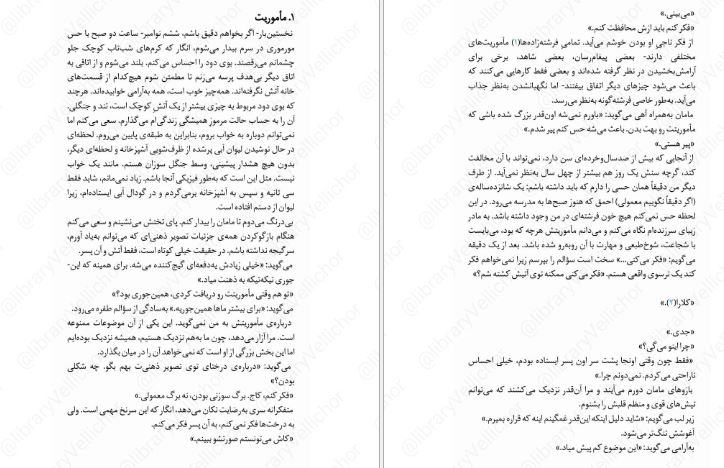 ۱. مأموریت
نخستین‌بار- اگر بخواهم دقیق باشم، ششم نوامبر- ساعت دو صبح با حس
مورموری در سرم بیدار می‌شوم، انگار که کرم‌های شب‌تاب کوچک جلو
چشمانم می‌رقصند. بوی دود را احساس می‌کنم. بلند می‌شوم و از اتاقی به
اتاق دیگر بی‌هدف پرسه می‌زنم تا مطمئن شوم هیچ‌کدام از قسمت‌های
خانه آتش نگرفته‌اند. همه‌چیز خوب است، همه به‌آرامی خوابیده‌اند. هرچند
که بوی دود مربوط به چیزی بیشتر از یک آتش کوچک است، تند و جنگلی.
آن را به حساب حالت مرموز همیشگی زندگی‌ام می‌گذارم. سعی می‌کنم اما
نمی‌توانم دوباره به خواب بروم، بنابراین به طبقه‌ی پایین می‌روم. لحظه‌ای
در حال نوشیدن لیوان آبی پرشده از ظرف‌شویی آشپزخانه و لحظه‌ای دیگر،
بدون هیچ هشدار پیشینی، وسط جنگل سوزان هستم. مانند یک خواب
نیست. مثل این است که به‌طور فیزیکی آنجا باشم. زیاد نمی‌مانم، شاید فقط
سی ثانیه و سپس به آشپزخانه برمی‌گردم و در گودال آبی ایستاده‌ام، زیرا
لیوان از دستم افتاده است.
بی‌درنگ می‌دوم تا مامان را بیدار کنم. پای تختش می‌نشینم و سعی می‌کنم
هنگام بازگوکردن همه‌ی جزئیات تصویر ذهنی‌ای که می‌توانم به‌یاد آورم،
سرگیجه نداشته باشم. در حقیقت خیلی کوتاه است، فقط آتش و آن پسر.
می‌گوید: «خیلی زیادش یه‌دفعه‌ای گیج‌کننده می‌شه. برای همینه که این-
جوری تیکه‌تیکه به ذهنت میاد.»
«تو هم وقتی مأموریتت رو دریافت کردی، همین‌جوری بود؟»
می‌گوید: «برای بیشتر ماها همین‌جوریه.» به‌سادگی از سؤالم طفره می‌رود.
درباره‌ی مأموریتش به من نمی‌گوید. این یکی از آن موضوعات ممنوعه
است. مرا آزار می‌دهد، چون ما به‌هم نزدیک هستیم، همیشه نزدیک بوده‌ایم
اما این بخش بزرگی از او است که نمی‌خواهد آن را در میان بگذارد.
می‌گوید: «درباره‌ی درختای توی تصویر ذهنی‌ت بهم بگو. چه شکلی
بودن؟»
«فکر کنم، کاج. برگ سوزنی بودن، نه برگ معمولی.»
متفکرانه سری به‌رضایت تکان می‌دهد، انگار که این سرنخ مهمی است. ولی
به درخت‌ها فکر نمی‌کنم، به آن پسر فکر می‌کنم.
«کاش می‌تونستم صورتشو ببینم.»
«می‌بینی.»
«فکر کنم باید ازش محافظت کنم.»
از فکر ناجی او بودن خوشم می‌آید. تمامی فرشته‌زاده‌ها(۱) مأموریت‌های
مختلفی دارند- بعضی پیغام‌رسان، بعضی شاهد، برخی برای
آرامش‌بخشیدن در نظر گرفته شده‌اند و بعضی فقط کارهایی می‌کنند که
باعث می‌شود چیزهای دیگر اتفاق بیفتند- اما نگهبانشدن به‌نظر جذاب
می‌آید. به‌طور خاصی فرشته‌گونه به‌نظر می‌رسد.
مامان به‌همراه آهی می‌گوید: «باورم نمی‌شه اون‌قدر بزرگ شده باشی که
مأموریتت رو بهت بدن. باعث می‌شه حس کنم پیر شدم.»
«پیر هستی.»
از آنجایی که بیش از صدسال‌وخرده‌ای سن دارد، نمی‌تواند با آن مخالفت
کند، گرچه سنش یک روز هم بیشتر از چهل سال به‌نظر نمی‌آید. از طرف
دیگر من دقیقاً همان حسی را دارم که باید داشته باشم: یک شانزده‌ساله‌ی
(اگر دقیقاً نگوییم معمولی) احمق که هنوز صبح‌ها به مدرسه می‌رود. در این
لحظه حس نمی‌کنم هیچ خون فرشته‌ای در من وجود داشته باشد. به مادر
زیبای سرزنده‌ام نگاه می‌کنم و می‌دانم مأموریتش هرچه که بود، می‌بایست
با شجاعت، شوخ‌طبعی و مهارت با آن روبه‌رو شده باشد. بعد از یک دقیقه
می‌گویم: «فکر می‌کنی...» سخت است سؤالم را بپرسم زیرا نمی‌خواهم فکر
کند یک ترسوی واقعی هستم. «فکر می‌کنی ممکنه توی آتیش کشته شم؟»
«کلارا(۲).»
«جدی.»
«چرا اینو می‌گی؟»
«فقط چون وقتی اونجا پشت سر اون پسر ایستاده بودم، خیلی احساس
ناراحتی می‌کردم. نمی‌دونم چرا.»
بازوهای مامان دورم می‌آیند و مرا آن‌قدر نزدیک می‌کشند که می‌توانم
تپش‌های قوی و منظم قلبش را بشنوم.
زیر لب می‌گویم: «شاید دلیل اینکه این‌قدر غمگینم اینه که قراره بمیرم.»
آغوشش تنگ‌تر می‌شود.
به‌آرامی می‌گوید: «این موضوع کم پیش میاد.»
@libraryVellichor